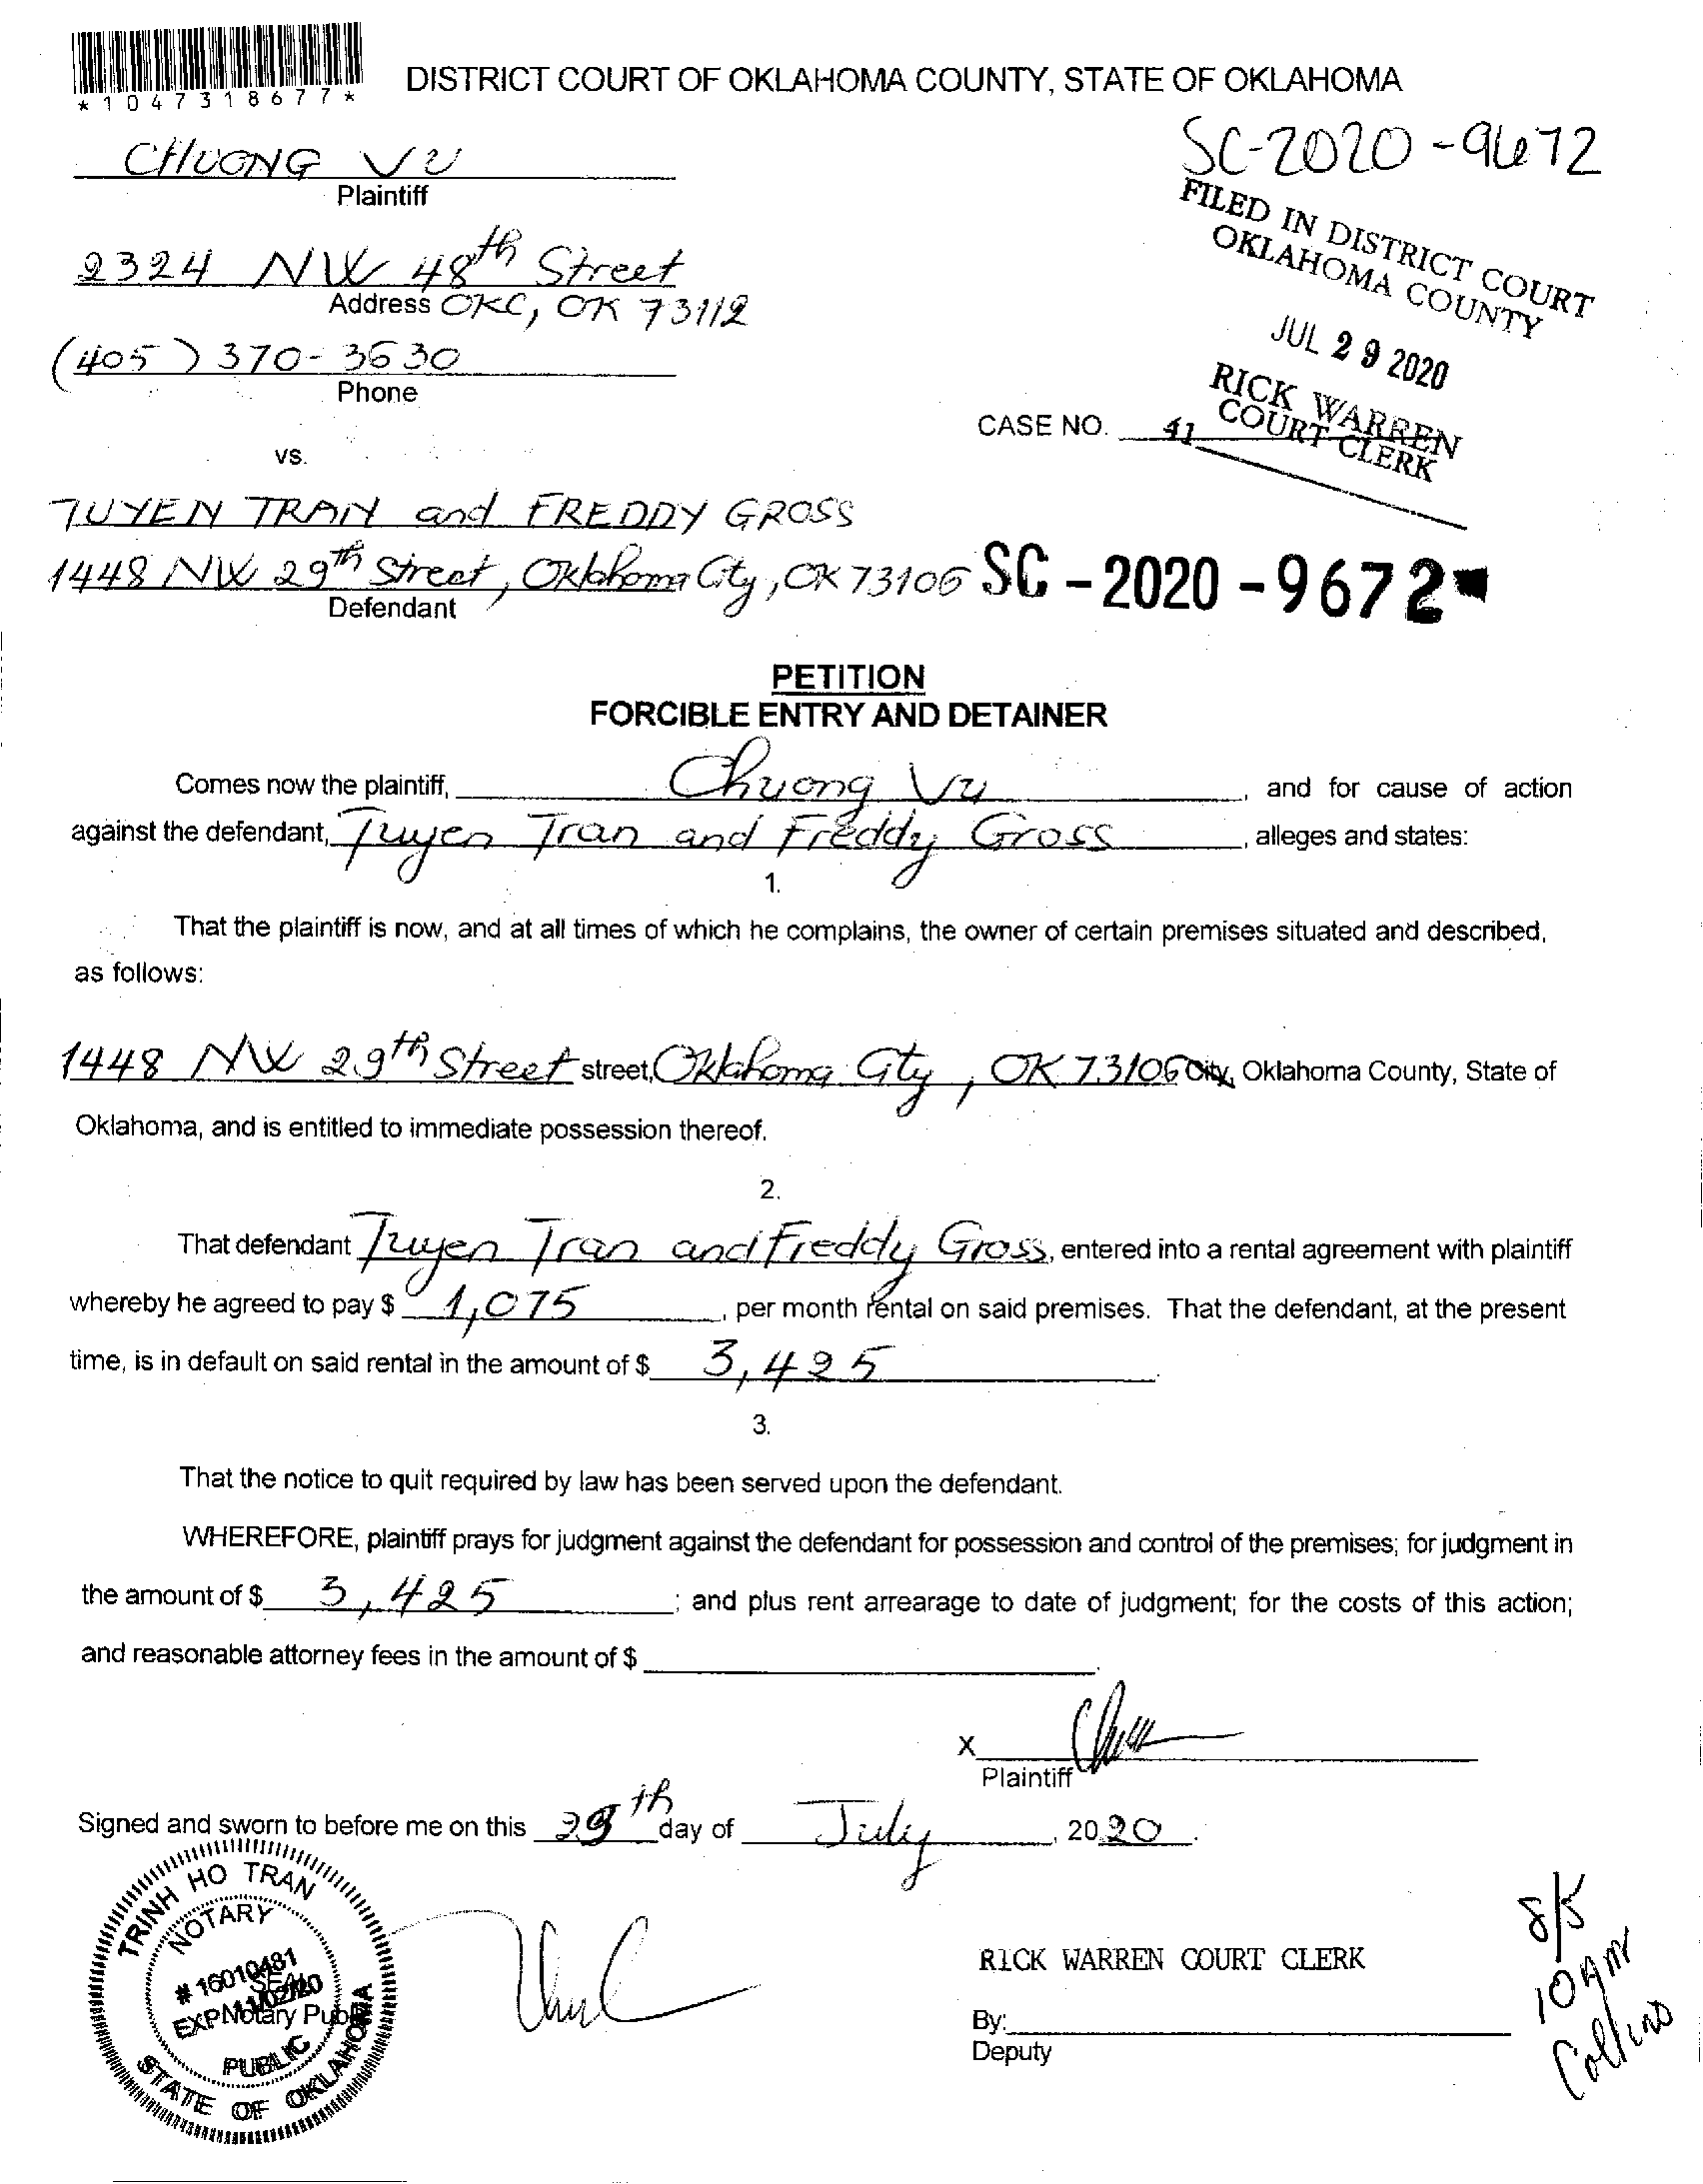 *1047318677*
DISTRICT COURT OF OKLAHOMA COUNTY, STATE OF OKLAHOMA
CHUONG VU
Plaintiff
SC-2020-9672
FILED IN DISTRICT COURT
OKLAHOMA COUNTY
JUL 29 2020
RICK WARREN
COURT CLERK
2324 NW 48th Street
Address OKC, OK 73112
(405) 370-3630
Phone
CASE NO.
41
vs.
TUYEN TRAN and FREDDY GROSS
1448 NW 29th Street, Oklahoma City, OK 73106
Defendant
SC-2020-9672
PETITION
FORCIBLE ENTRY AND DETAINER
Comes now the plaintiff, Chuong Vu, and for cause of action
against the defendant, Tuyen Tran and Freddy Gross, alleges and states:
1.
That the plaintiff is now, and at all times of which he complains, the owner of certain premises situated and described,
as follows:
1448 NW 29th Street street, Oklahoma City, OK 73106 City, Oklahoma County, State of
Oklahoma, and is entitled to immediate possession thereof.
2.
That defendant Tuyen Tran and Freddy Gross, entered into a rental agreement with plaintiff
whereby he agreed to pay $ 1,075, per month rental on said premises. That the defendant, at the present
time, is in default on said rental in the amount of $ 3,425.
3.
That the notice to quit required by law has been served upon the defendant.
WHEREFORE, plaintiff prays for judgment against the defendant for possession and control of the premises; for judgment in
the amount of $ 3,425; and plus rent arrearage to date of judgment; for the costs of this action;
and reasonable attorney fees in the amount of $
X
Plaintiff
Signed and sworn to before me on this 29th day of July, 2020.
TRINH HO TRAN
NOTARY
# 16010481
SEAL
EXP 11/02/20
Notary Public
PUBLIC
STATE OF OKLAHOMA
RICK WARREN COURT CLERK
By:
Deputy
8/5
10 am
Collins